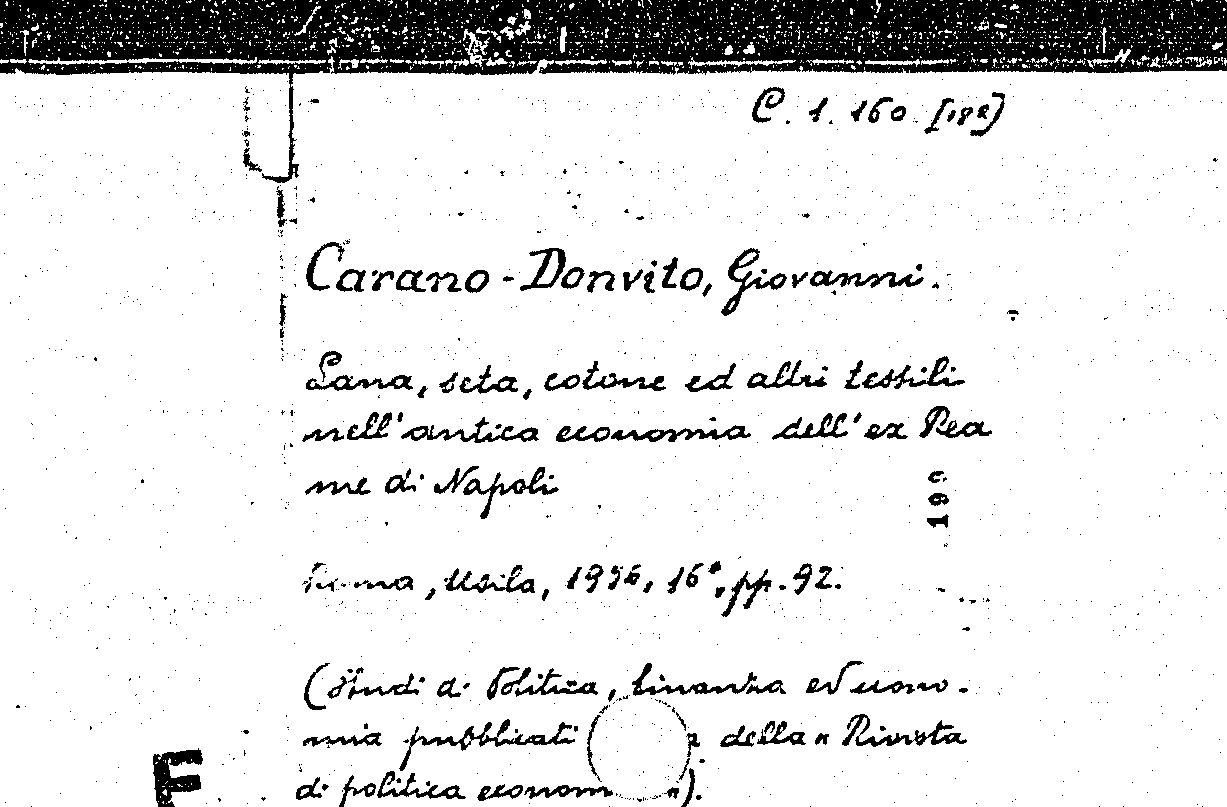 C. 1. 160 [182]
Carano-Donvito, Giovanni.
Lana, seta, cotone ed altri tessili
nell'antica economia dell'ex Rea
me di Napoli
19
Roma, Usila, 1956, 16°, pp. 92.
(Studi di Politica, finanza ed econo-
mia pubblicati della "Rivista
di politica econom").
F